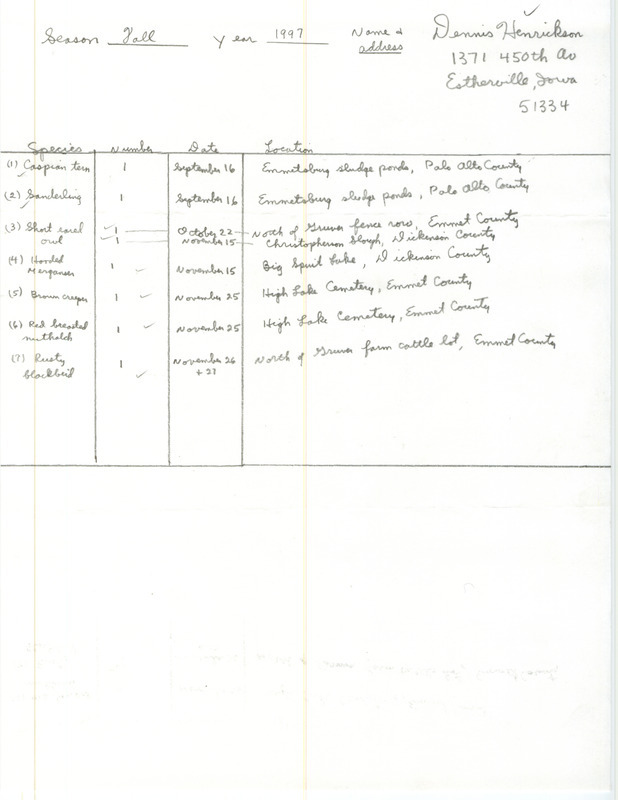 Season Fall Year 1997 Name & address Dennis Henrickson
1371 450th Av
Estherville, Iowa
51334
Species Number Date Location
(1) Caspian tern 1 September 16 Emmetsburg sludge ponds, Palo Alto County
(2) Sanderling 1 September 16 Emmetsburg sludge ponds, Palo Alto County
(3) Short eared owl ✓1 October 22 North of Gruver fence row, Emmet County
✓1 November 15 Christopherson Slough, Dickinson County
(4) Hooded Merganser 1 ✓ November 15 Big Spirit Lake, Dickinson County
(5) Brown creeper 1 ✓ November 25 High Lake Cemetery, Emmet County
(6) Red breasted nuthatch 1 ✓ November 25 High Lake Cemetery, Emmet County
(7) Rusty blackbird 1 ✓ November 26 + 27 North of Gruver farm cattle lot, Emmet County